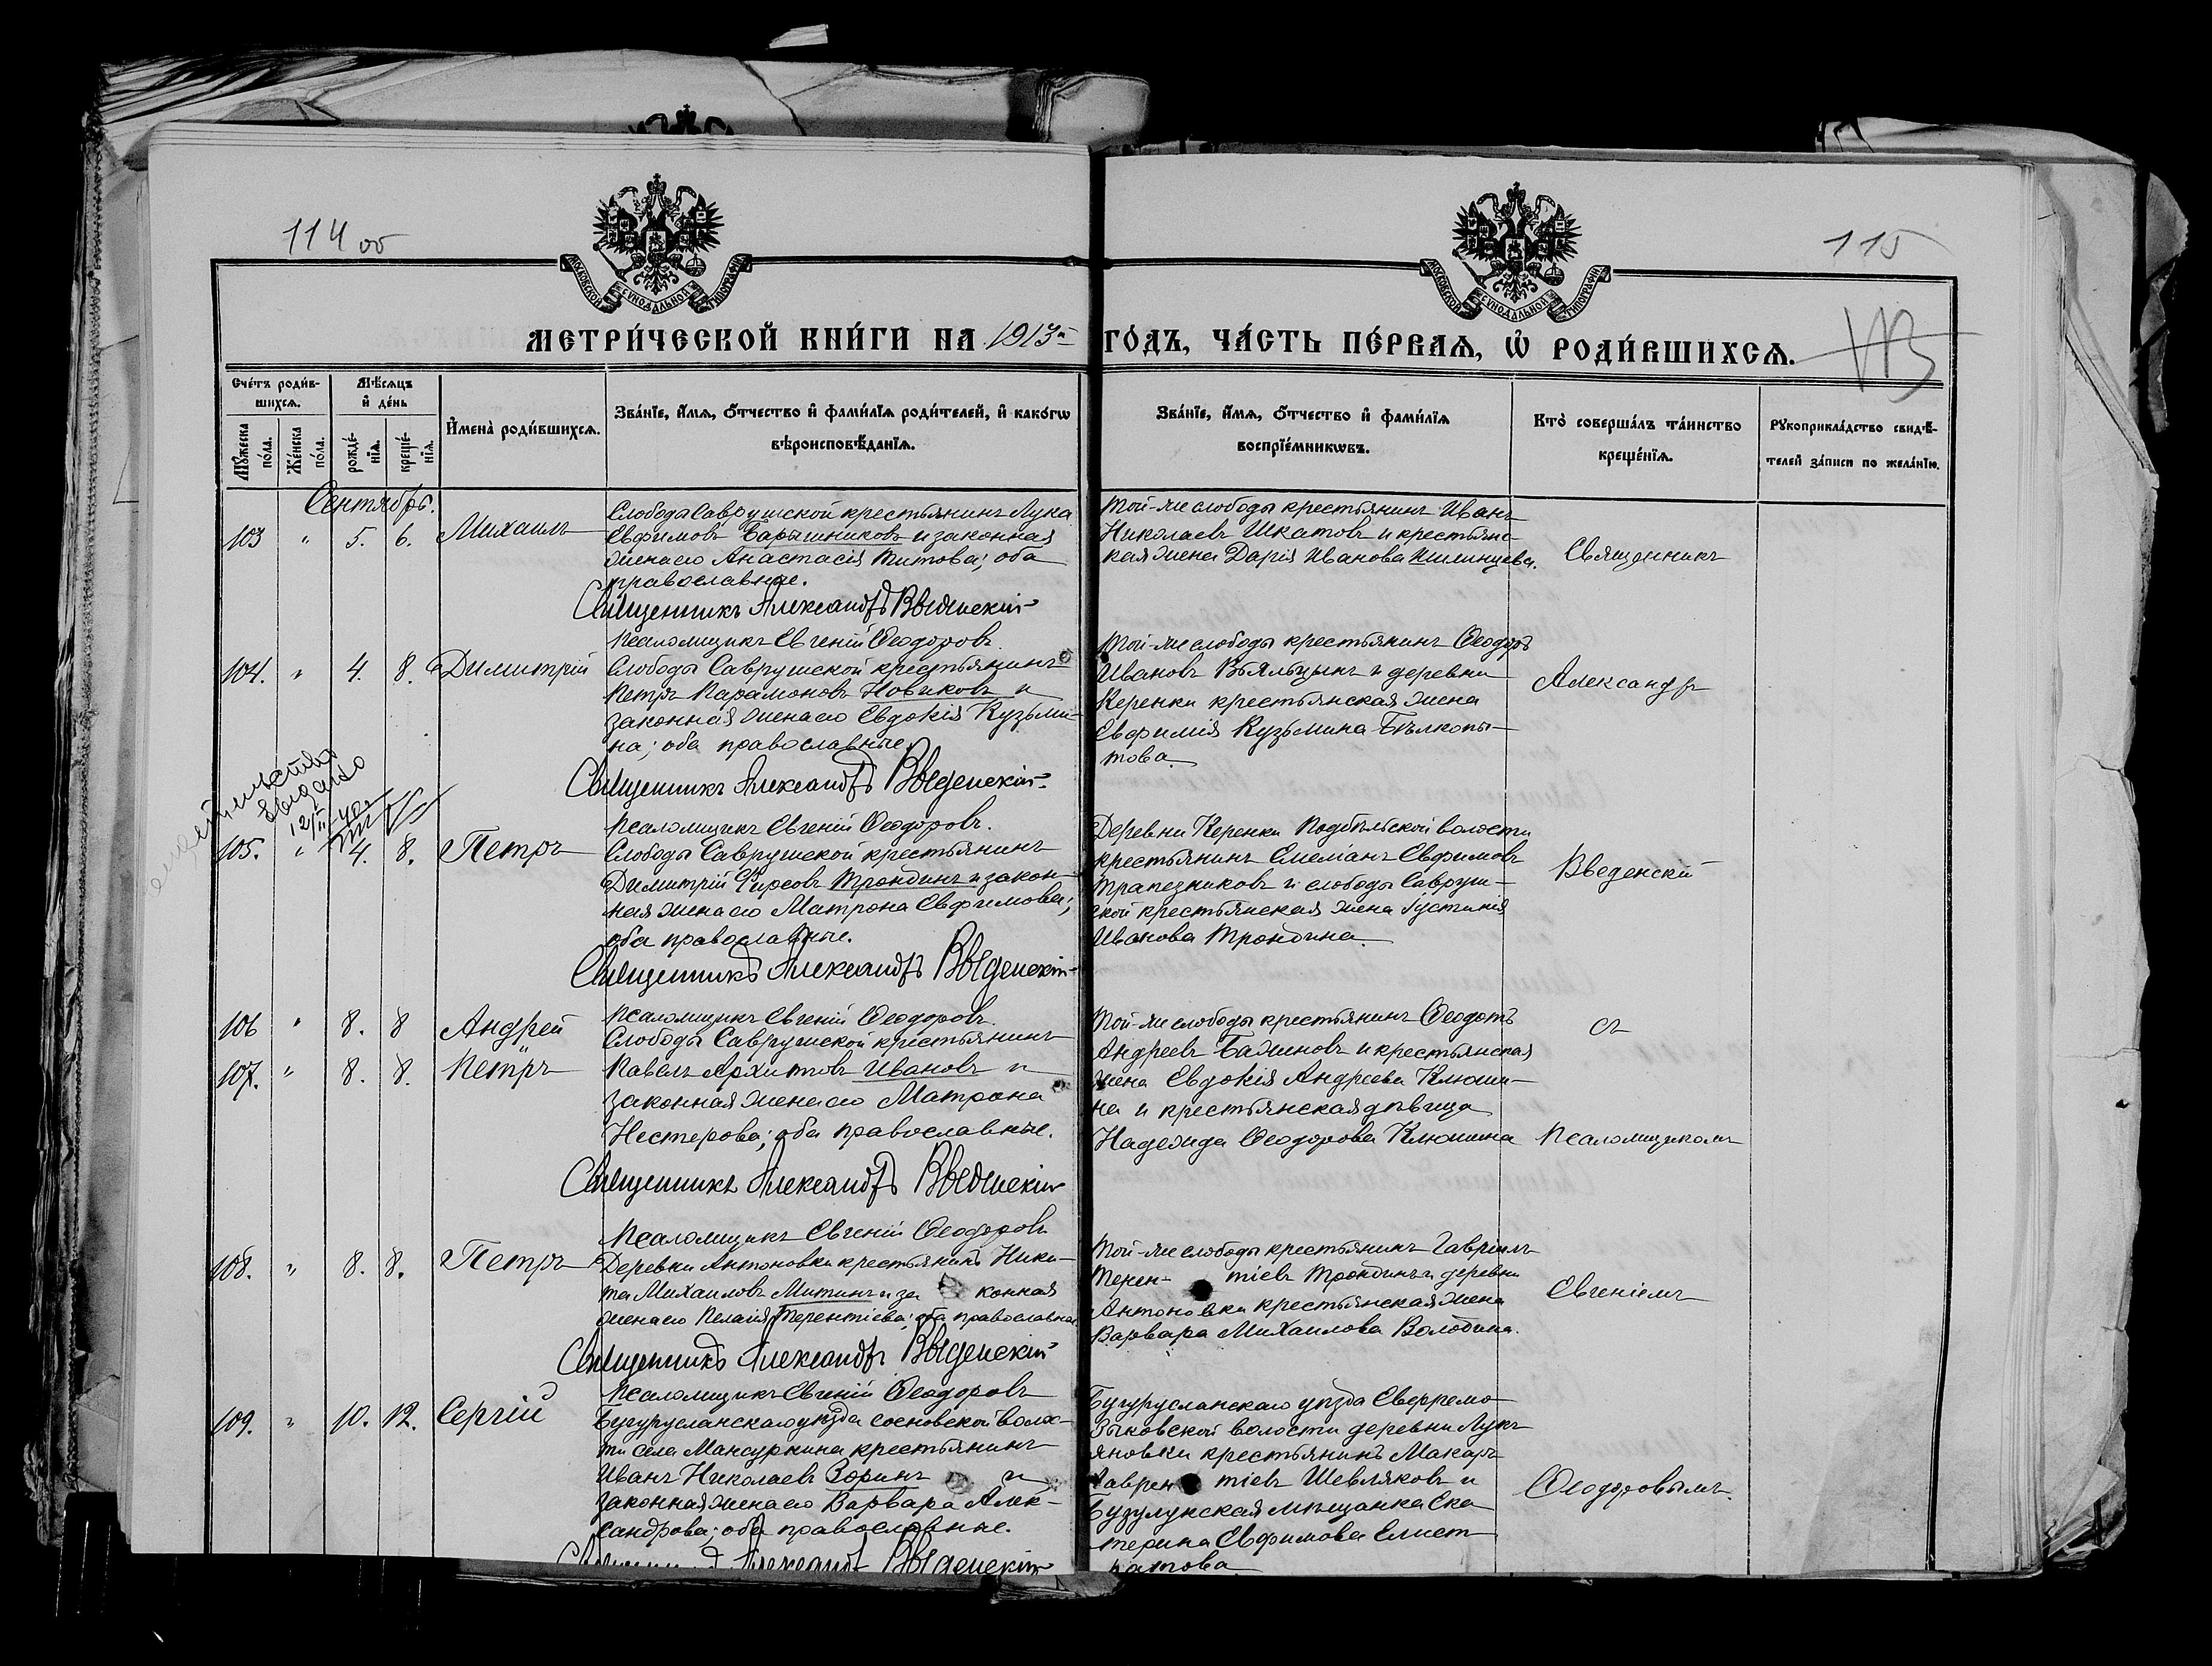 114 об
115
МОСКОВСКОЙ СѴНОДАЛЬНОЙ ТИПОГРАФІИ
МОСКОВСКОЙ СѴНОДАЛЬНОЙ ТИПОГРАФІИ
МЕТРИ́ЧЕСКОЙ КНИ́ГИ НА 1913й ГО́ДЪ, ЧА́СТЬ ПЕ́РВАѦ, Ѡ РОДИ́ВШИХСѦ.
Сче́тъ роди́в-
шихсѧ.
Мꙋ́жеска
по́ла.
Же́нска
по́ла.
Мѣ́сѧцъ
и҆ де́нь
рожде́-
нїѧ.
креще́-
нїѧ.
И҆мена̀ роди́вшихсѧ.
Зва́нїе, и҆́мѧ, ѻ҆́тчество и҆ фами́лїѧ роди́телей, и҆ како́гѡ
вѣроисповѣ́данїѧ.
Зва́нїе, и҆́мѧ, ѻ҆́тчество и҆ фами́лїѧ
воспрїе́мникѡвъ.
Кто̀ соверша́лъ та́инство
креще́нїѧ.
Рꙋкоприкла́дство свидѣ́-
телей за́писи по жела́нїю.
Сентябрь.
103 " 5. 6. Михаилъ
Слободы Саврушской крестьянинъ Лука
Евфимовъ Барышниковъ и законная
жена его Анастасія Титова; оба
православные.
Священникъ Александръ Введенскій
Псаломщикъ Евгеній Ѳеодоровъ.
Той-же слободы крестьянинъ Иванъ
Николаевъ Шкатовъ и крестьянс-
кая жена Дарія Иванова
Священникъ
104. " 4. 8. Димитрій
Слободы Саврушской крестьянинъ
Петръ Парамоновъ Новиковъ и
законная жена его Евдокія Кузьми-
на; оба православные.
Священникъ Александръ Введенскій
Псаломщикъ Евгеній Ѳеодоровъ.
Той-же слободы крестьянинъ Ѳеодоръ
Ивановъ Вьяльцынъ и деревни
Керенки крестьянская жена
Евфимія Кузьмина Бѣлкопы-
това.
Александръ
свидѣтельство
выдано
12/II-40
105. " 4. 8. Петръ
Слободы Саврушской крестьянинъ
Димитрій Фирсовъ Трондинъ и закон-
ная жена его Матрона Евфимова;
оба православные.
Священникъ Александръ Введенскій
Псаломщикъ Евгеній Ѳеодоровъ.
Деревни Керенки Подбѣльской волости
крестьянинъ Емеліанъ Евфимовъ
Трапезниковъ и слободы Савруш-
ской крестьянская жена Іустинія
Иванова Трондина.
Введенскій
106 " 8. 8 Андрей
107. " 8. 8. Петръ
Слободы Саврушской крестьянинъ
Павелъ Архиповъ Ивановъ и
законная жена его Матрона
Нестерова; оба православные.
Священникъ Александръ Введенскій
Псаломщикъ Евгеній Ѳеодоровъ
Той-же слободы крестьянинъ Ѳеодотъ
Андреевъ Бажиновъ и крестьянская
жена Евдокія Андреева Клюши-
на и крестьянская дѣвица
Надежда Ѳеодорова Клюшина
съ
Псаломщикомъ
108. " 8. 8. Петръ
Деревни Антоновки крестьянинъ Ники-
та Михаиловъ Митинъ и за конная
жена его Пелагія Терентіева; оба православные
Священникъ Александръ Введенскій
Псаломщикъ Евгеній Ѳеодоровъ
Той-же слободы крестьянинъ Гавріилъ
Терен- тіевъ Трондинъ и деревни
Антоновки крестьянская жена
Варвара Михаилова Володина.
Евгеніемъ
109. " 10. 12. Сергій
Бугурусланскаго уѣзда сосновской волос-
ти села Мансуркина крестьянинъ
Иванъ Николаевъ Зоринъ и
законная жена его Варвара Алек-
сандрова; оба православные.
Священникъ Александръ Введенскій
Бугурусланскаго уѣзда
волости деревни Лукь-
яновки крестьянинъ Макаръ
Лаврен тіевъ Шевляковъ и
Бузулукская мѣщанка Ека
терина Евфимова Елист
ратова
Ѳеодоровымъ.